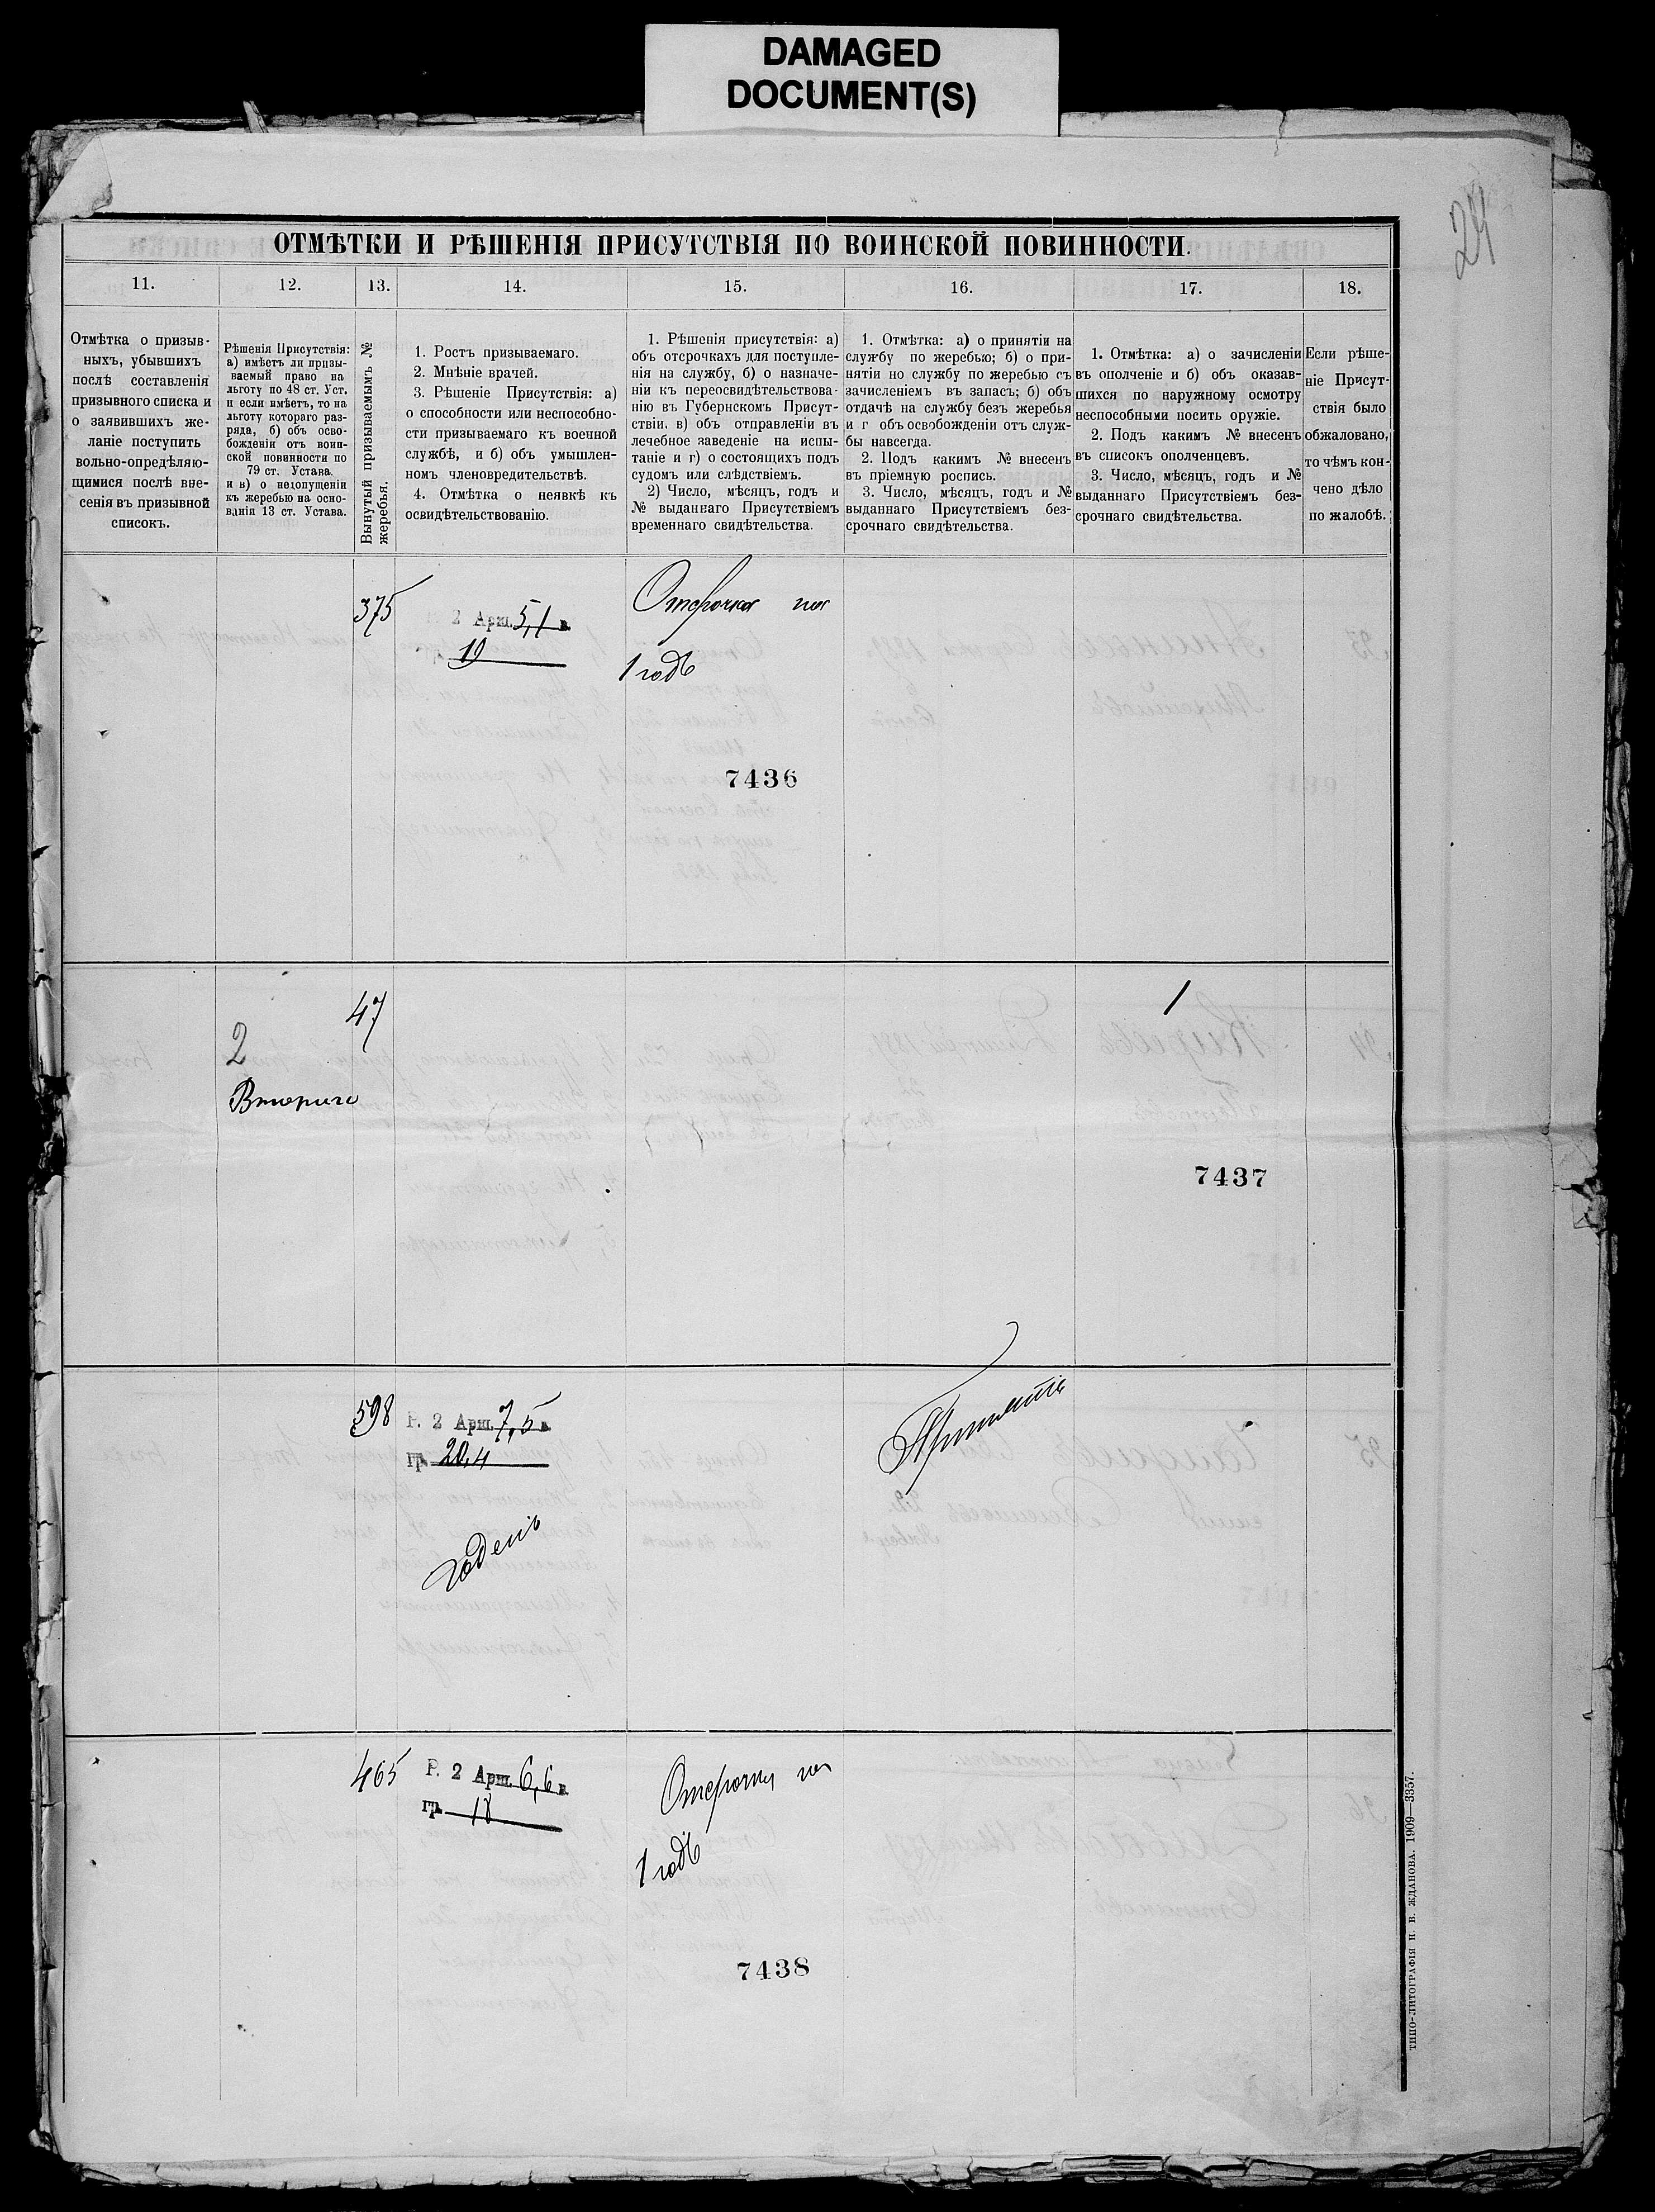 DAMAGED
DOCUMENT(S)
24
ОТМѢТКИ И РѢШЕНІЯ ПРИСУТСТВІЯ ПО ВОИНСКОЙ ПОВИННОСТИ.
11.
12.
13.
14.
15.
16.
17.
18.
Отмѣтка о призыв-
ныхъ, убывшихъ
послѣ составленія
призывного списка и
о заявившихъ же-
ланіе поступить
вольно-опредѣляю-
щимися послѣ вне-
сенія въ призывной
списокъ.
Рѣшенія Присутствія:
а) имѣетъ ли призы-
ваемый право на
льготу по 48 ст. Уст.
и если имѣетъ, то на
льготу котораго раз-
ряда, б) объ осво-
божденіи отъ воин-
ской повинности по
79 ст. Устава.
и в) о недопущеніи
къ жеребью на осно-
ваніи 13 ст. Устава.
Вынутый призываемымъ №
жеребья.
1. Ростъ призываемаго.
2. Мнѣніе врачей.
3. Рѣшеніе Присутствія: а)
о способности или неспособно-
сти призываемаго къ военной
службѣ, и б) объ умышлен-
номъ членовредительствѣ.
4. Отмѣтка о неявкѣ къ
освидѣтельствованію.
1. Рѣшенія присутствія: а)
объ отсрочкахъ для поступле-
нія на службу, б) о назначе-
ніи къ переосвидѣтельствова-
нію въ Губернскомъ Присут-
ствіи, в) объ отправленіи въ
лечебное заведеніе на испы-
таніе и г) о состоящихъ подъ
судомъ или слѣдствіемъ.
2) Число, мѣсяцъ, годъ и
№ выданнаго Присутствіемъ
временнаго свидѣтельства.
1. Отмѣтка: а) о принятіи на
службу по жеребью; б) о при-
нятіи по службу по жеребью съ
зачисленіемъ въ запасъ; б) объ
отдачѣ на службу безъ жеребья
и г объ освобожденіи отъ служ-
бы навсегда.
2. Подъ какимъ № внесенъ
въ пріемную роспись.
3. Число, мѣсяцъ, годъ и №
выданнаго Присутствіемъ без-
срочнаго свидѣтельства.
1. Отмѣтка: а) о зачисленіи
въ ополченіе и б) объ оказав-
шихся по наружному осмотру
неспособными носить оружіе.
2. Подъ какимъ № внесенъ
въ списокъ ополченцевъ.
3. Число, мѣсяцъ, годъ и №
выданнаго Присутствіемъ без-
срочнаго свидѣтельства.
Если рѣше-
ніе Присут-
ствія было
обжаловано,
то чѣмъ кон-
чено дѣло
по жалобѣ.
375
2 Арш. 5,1 в.
19
Отсрочка на
1 годъ
7436
47
2
Второго
1
7437
598
Р. 2 Арш. 7,5 в.
гр. 20,4
годенъ
Принять
465
Р. 2 Арш. 6,6 в.
гр. 18
Отсрочка на
1 годъ
7438
ТИПО-ЛИТОГРАФІЯ Н. В. ЖДАНОВА. 1909—3357.